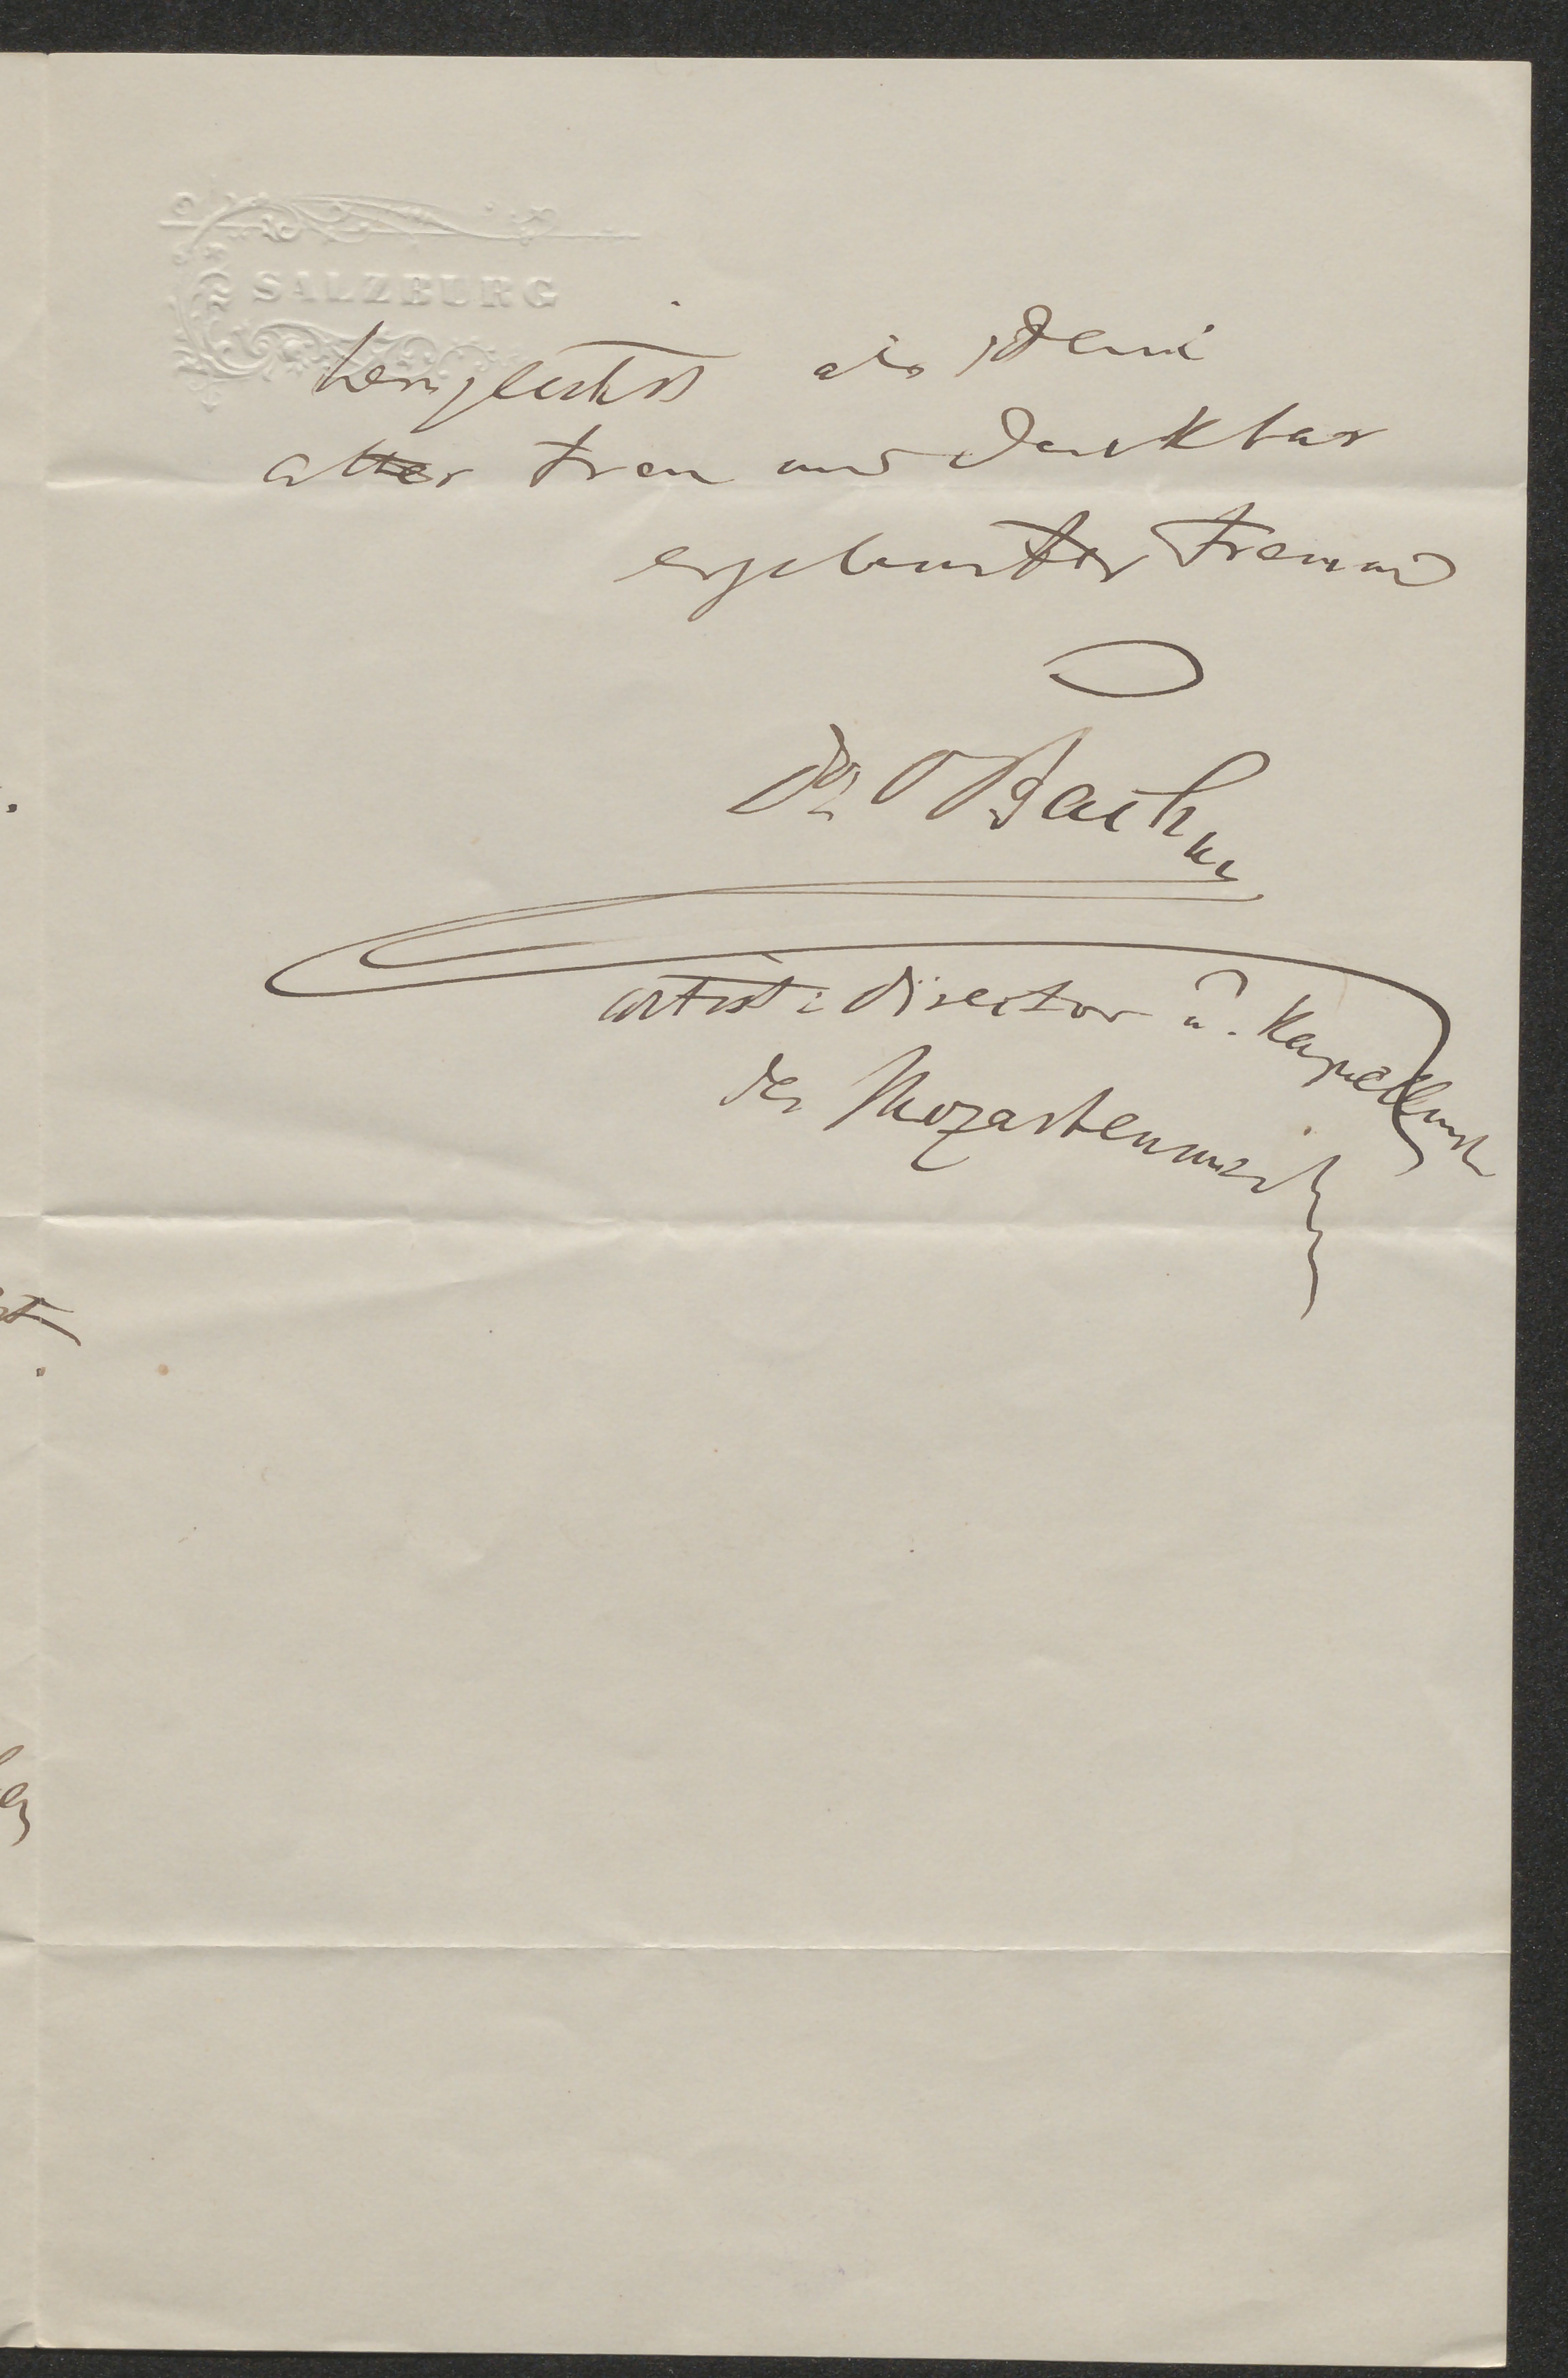 SALZBURG
herzlichst als Dein
alter treu und dankbar
ergebenster Freund
Dr O Bach
artist: Director u. Kapellmst
des Mozarteums